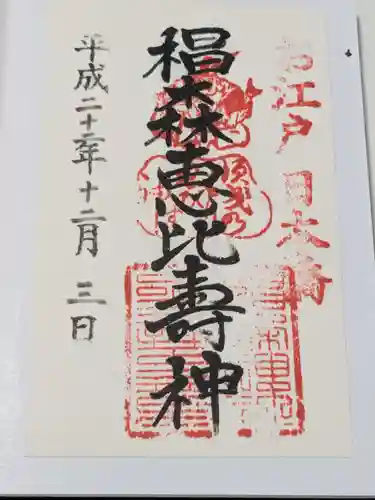 お江戸 日本橋
椙森恵比壽神
平成二十二年十二月 三日